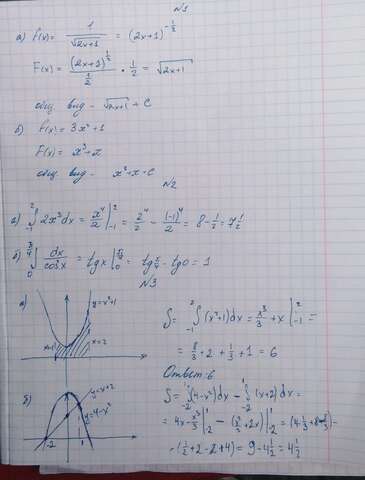 №1
а) f(x) = 1/√(2x+1) = (2x+1)^(-1/2)
F(x) = (2x+1)^(1/2)/(1/2) · 1/2 = √(2x+1)
общ вид - √(2x+1) + C
б) f(x) = 3x²+1
F(x) = x³+x
общ вид - x³+x+C
№2
а) ∫₋₁² 2x³dx = x⁴/2 |₋₁² = 2⁴/2 - (-1)⁴/2 = 8 - 1/2 = 7 1/2
б) ∫₀^(π/4) dx/cos²x = tgx |₀^(π/4) = tg π/4 - tg0 = 1
№3
а) y=x²+1
x=-1
x=2
S = ∫₋₁² (x²+1)dx = x³/3 + x |₋₁² =
= 8/3 + 2 + 1/3 + 1 = 6
Ответ: 6
б) y=x+2
y=4-x²
-2 1
S = ∫₋₂¹ (4-x²)dx - ∫₋₂¹ (x+2)dx =
= 4x - x³/3 |₋₂¹ - (x²/2 + 2x) |₋₂¹ = (4 - 1/3 + 8 - 8/3) -
- (1/2 + 2 - 2 + 4) = 9 - 4 1/2 = 4 1/2